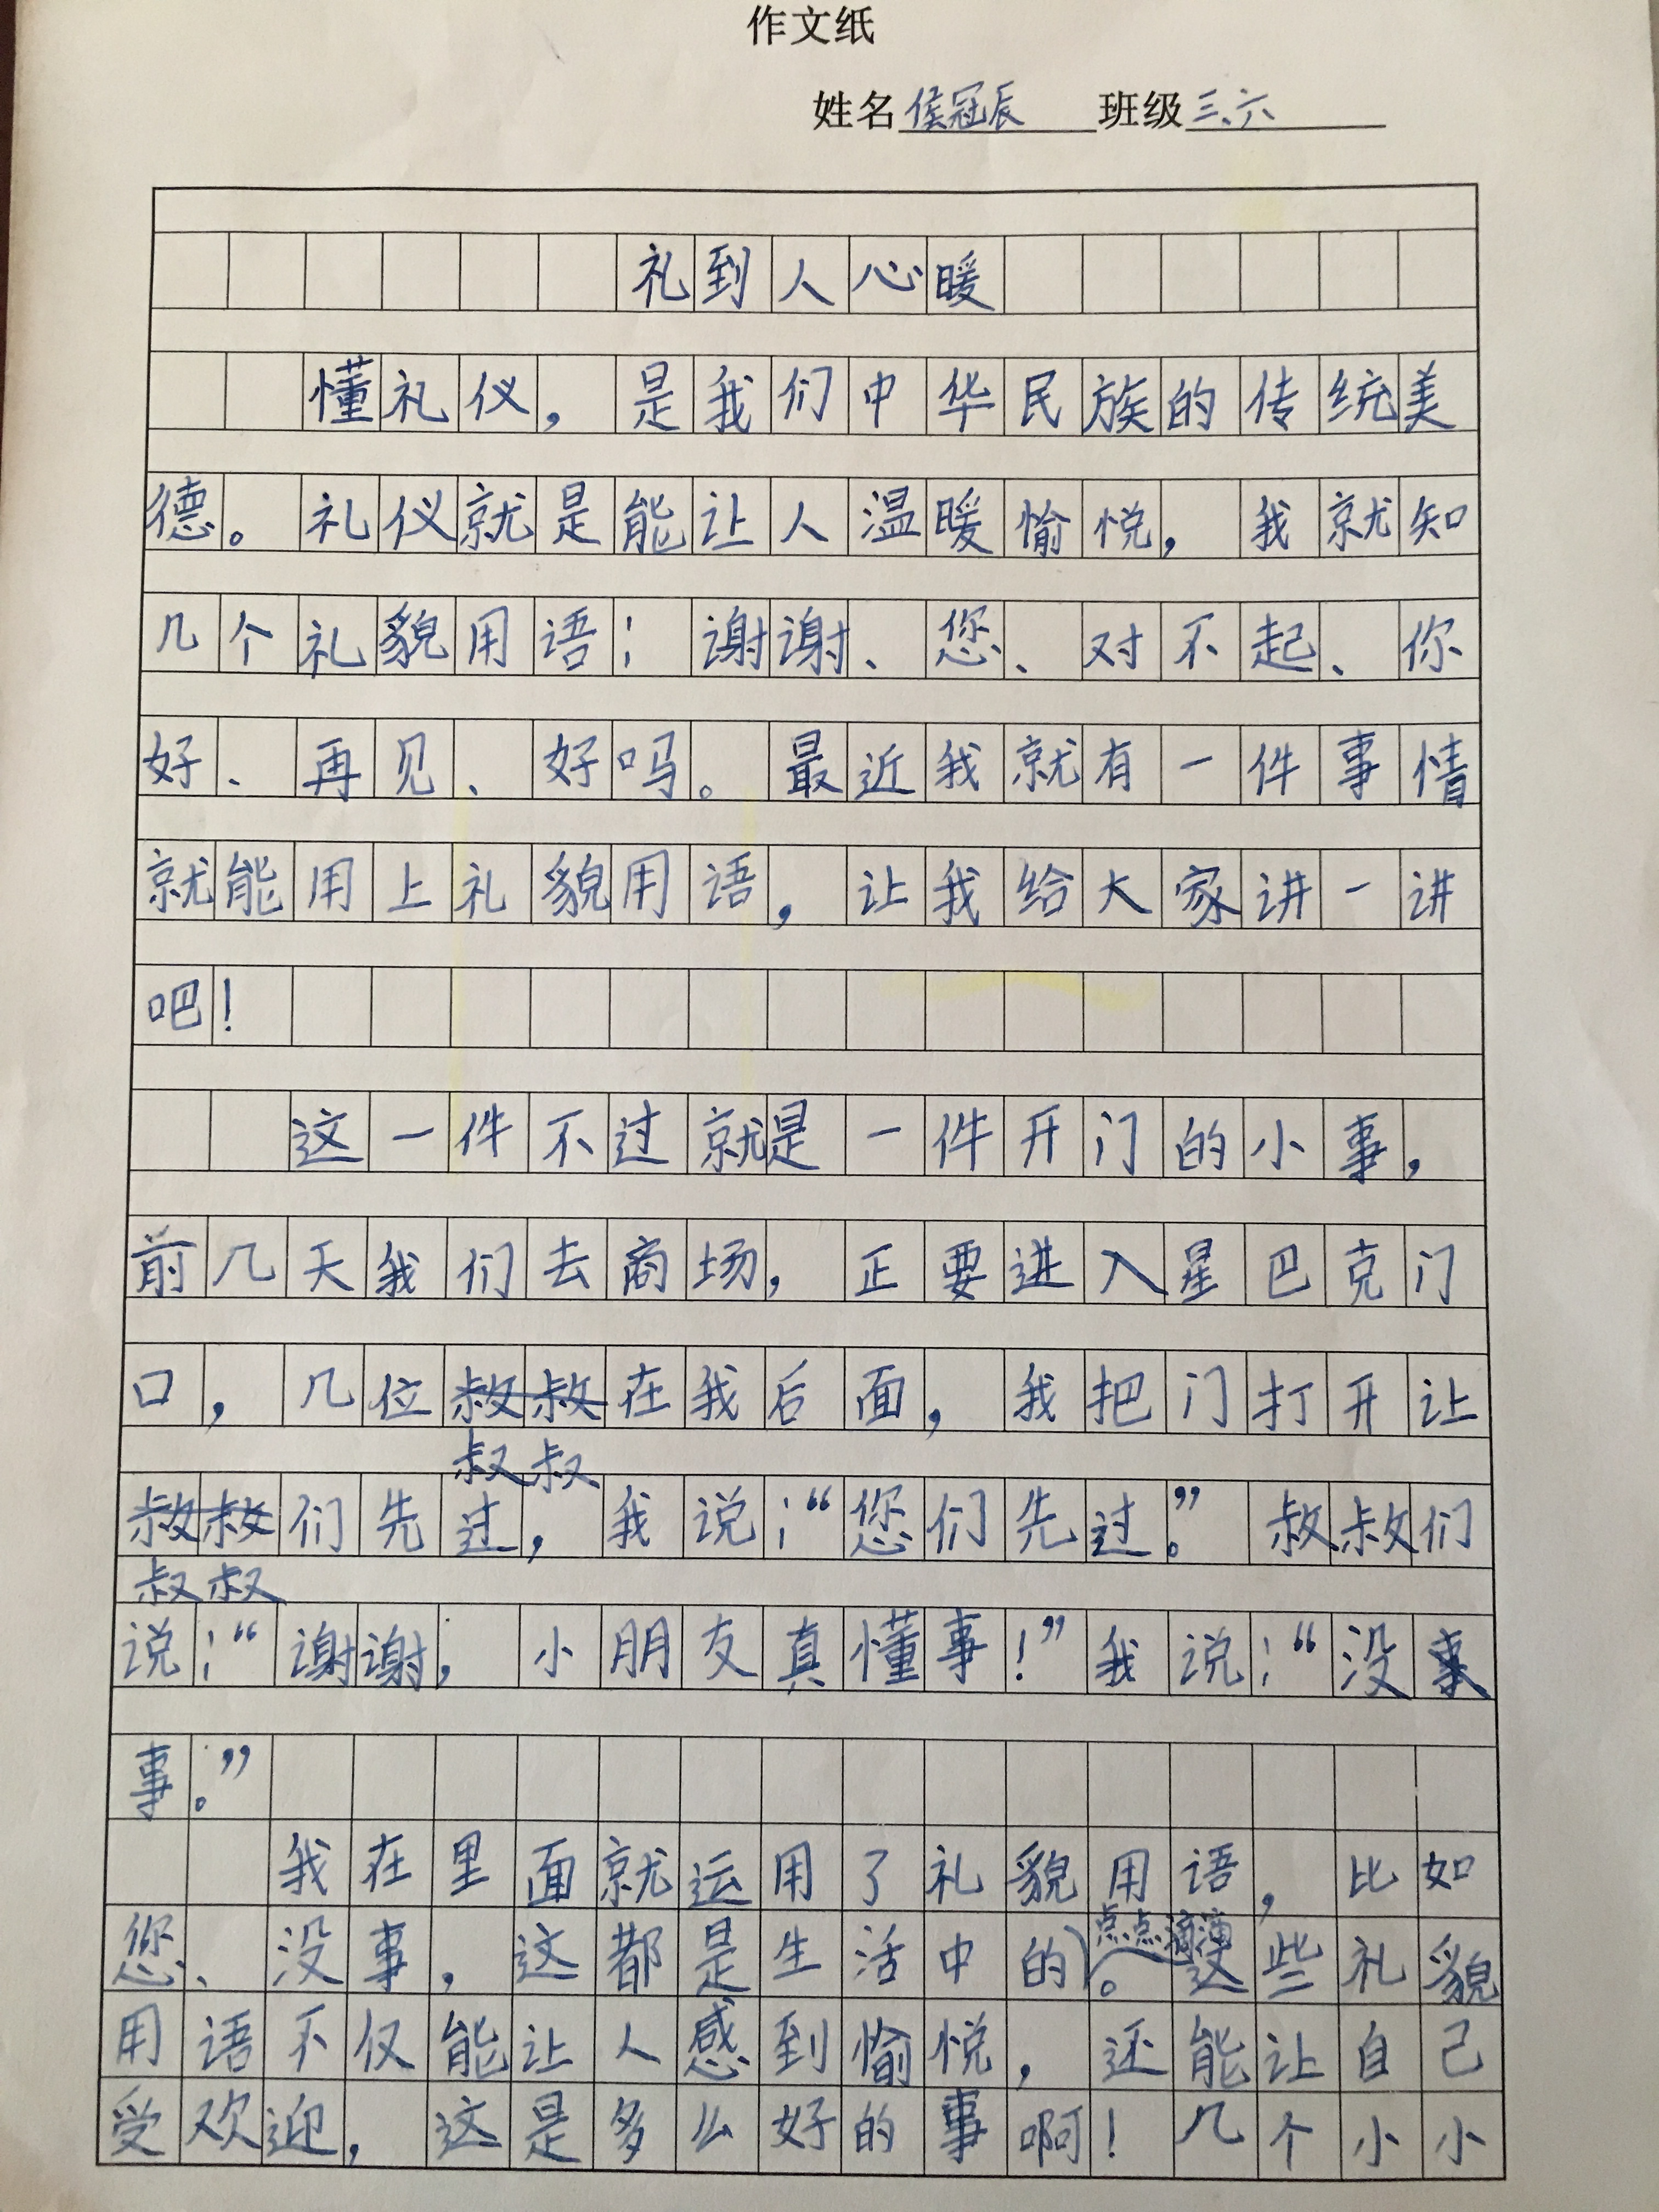 作文纸
姓名侯冠辰 班级三、六
礼到人心暖
懂礼仪，是我们中华民族的传统美
德。礼仪就是能让人温暖愉悦，我就知
几个礼貌用语：谢谢、您、对不起、你
好、再见、好吗。最近我就有一件事情
就能用上礼貌用语，让我给大家讲一讲
吧！
这一件不过就是一件开门的小事，
前几天我们去商场，正要进入星巴克门
口，几位叔叔在我后面，我把门打开让
叔叔们先过，我说：“您们先过。”叔叔们
说：“谢谢，小朋友真懂事！”我说：“没
事。”
我在里面就运用了礼貌用语，比如
您、没事，这都是生活中的点点滴滴。这些礼貌
用语不仅能让人感到愉悦，还能让自己
受欢迎，这是多么好的事啊！几个小小